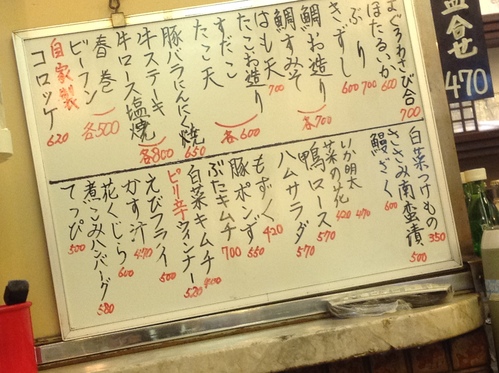 まぐろわさび合 700
ほたるいか 600
ぶり 700
きずし 600
鯛お造り
鯛すみそ 各700
はも天 700
たこお造り
すだこ 各600
たこ天
豚バラにんにく焼 650
牛ステーキ
牛ロース塩焼 各800
春巻
ビーフン 各500
自家製
コロッケ 620
白菜つけもの 350
ささみ南蛮漬 500
鰻ざく 600
いか明太 470
菜の花 420
鴨ロース 570
ハムサラダ 570
もずく 420
豚ポンず 550
ぶたキムチ 700
白菜キムチ 400
ピリ辛ウィンナー 520
えびフライ 500
かす汁 470
花くじら 600
煮こみハンバーグ 580
てっぴ 500
盛合せ
470